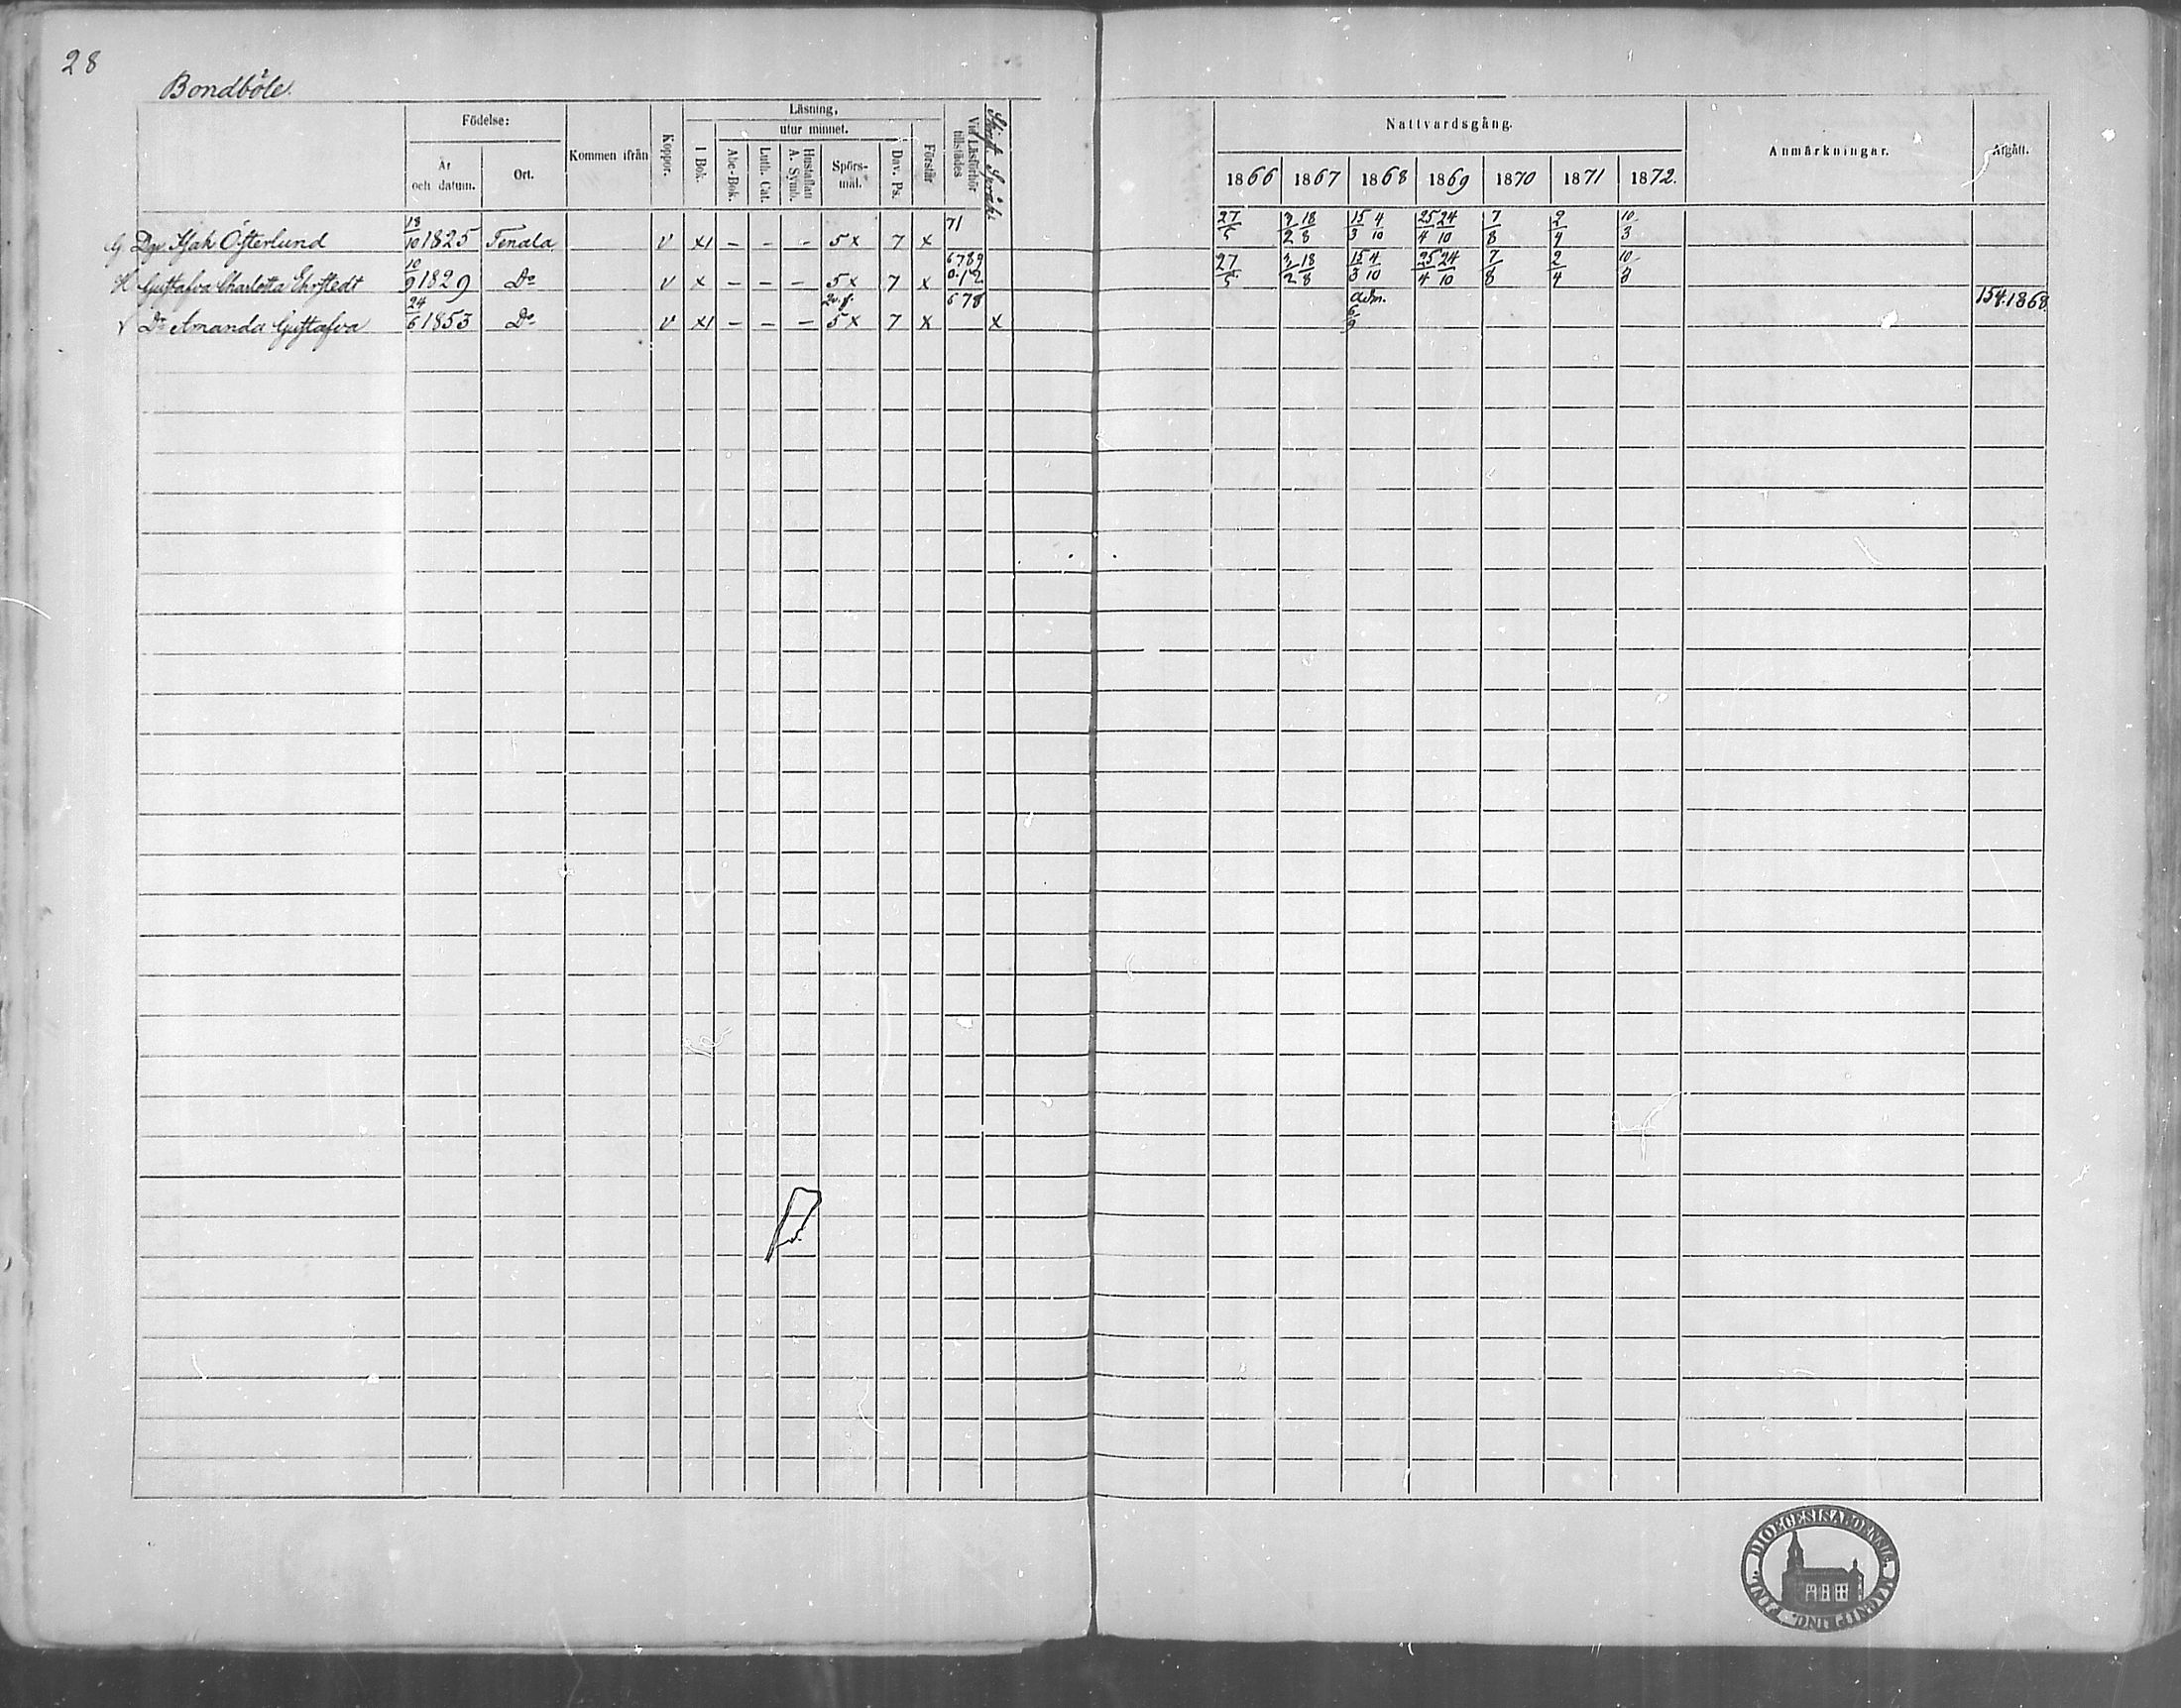 28
Bondböle.
Födelse:
År och datum.
Ort.
Kommen ifrån
Koppor.
Läsning,
utur minnet.
I Bok.
Abc-Bok.
Luth. Cat.
Hustaflan A. Symb.
Spörs-mål.
Dav. Ps.
Förstår
Vid Läsförhör tillstädes
Skrift. Språk.
Nattvardsgång.
1866 1867 1868 1869 1870 1871 1872.
Anmärkningar.
Afgått.
Isak Österlund 18/10 1825 Tenala v x1 – – – 5x 7 x 71 27/5 18/8 15/3 4/10 25/4 24/10 7/8 2/4 10/3
H Gustafva Charlotta Ehrstedt 10/9 1829 Do v x – – – 5x 7 x 6789 0.12 27/5 18/8 15/3 4/10 25/4 24/10 7/8 2/4 10/3
Dr Amanda Gustafva 24/6 1853 Do v x1 – – – 5x 7 x 678 x adm. 6/9 154.1868.
DIOECESIS ABOENSIS MAGNI PRINC. FINL.